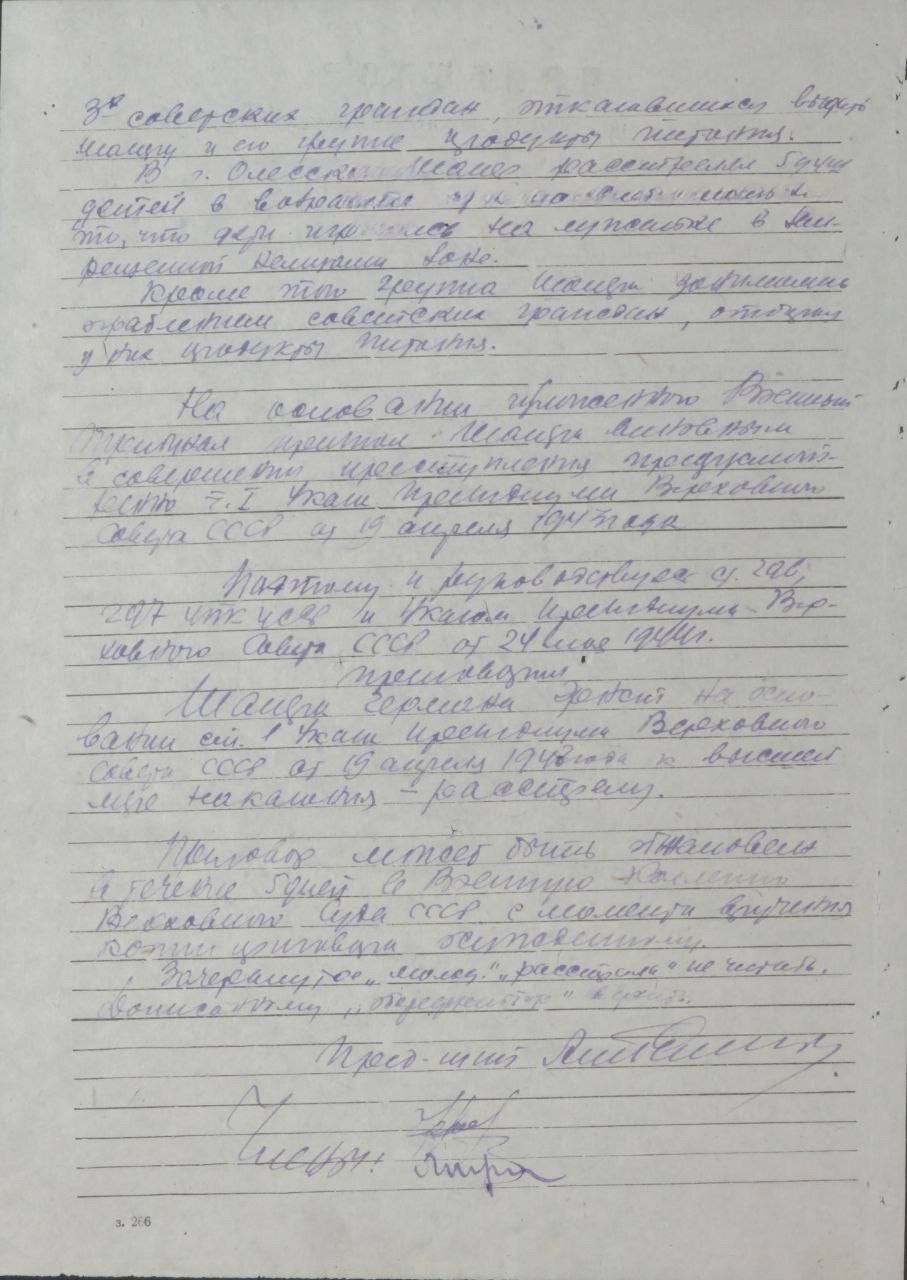 3х советских граждан, отказавшихся выдать
Шанцу и его группе продукты питания.
В г. Олесско Шанц расстрелял 5 душ
детей в возрасте
то, что дети игрались на лужайке в зап-
рещенной немцами зоне.
Кроме того группа Шанца занималась
ограблением советских граждан, отбирая
у них продукты питания.
На основании изложенного Военный
Трибунал признал Шанца виновным
в совершении преступления предусмот-
ренно ст. I Указа Президиума Верховного
Совета СССР от 19 апреля 1943 года
Поэтому и руководствуясь ст. 296,
297 УПК УССР и Указом Президиума Вер-
ховного Совета СССР от 24 мая 1944 г.
приговорил
Шанца Германа на осно-
вании ст. 1 Указа Президиума Верховного
Совета СССР от 19 апреля 1943 года к высшей
мере наказания – расстрелу.
Приговор может быть обжалован
в течение 5 дней в Военную Коллегию
Верховного Суда СССР с момента вручения
копии приговора осужденному.
Зачеркнутое „ “ „расстрела“ не читать.
Дописанному „ “ верить.
Пред-щий
Члены:
з. 266